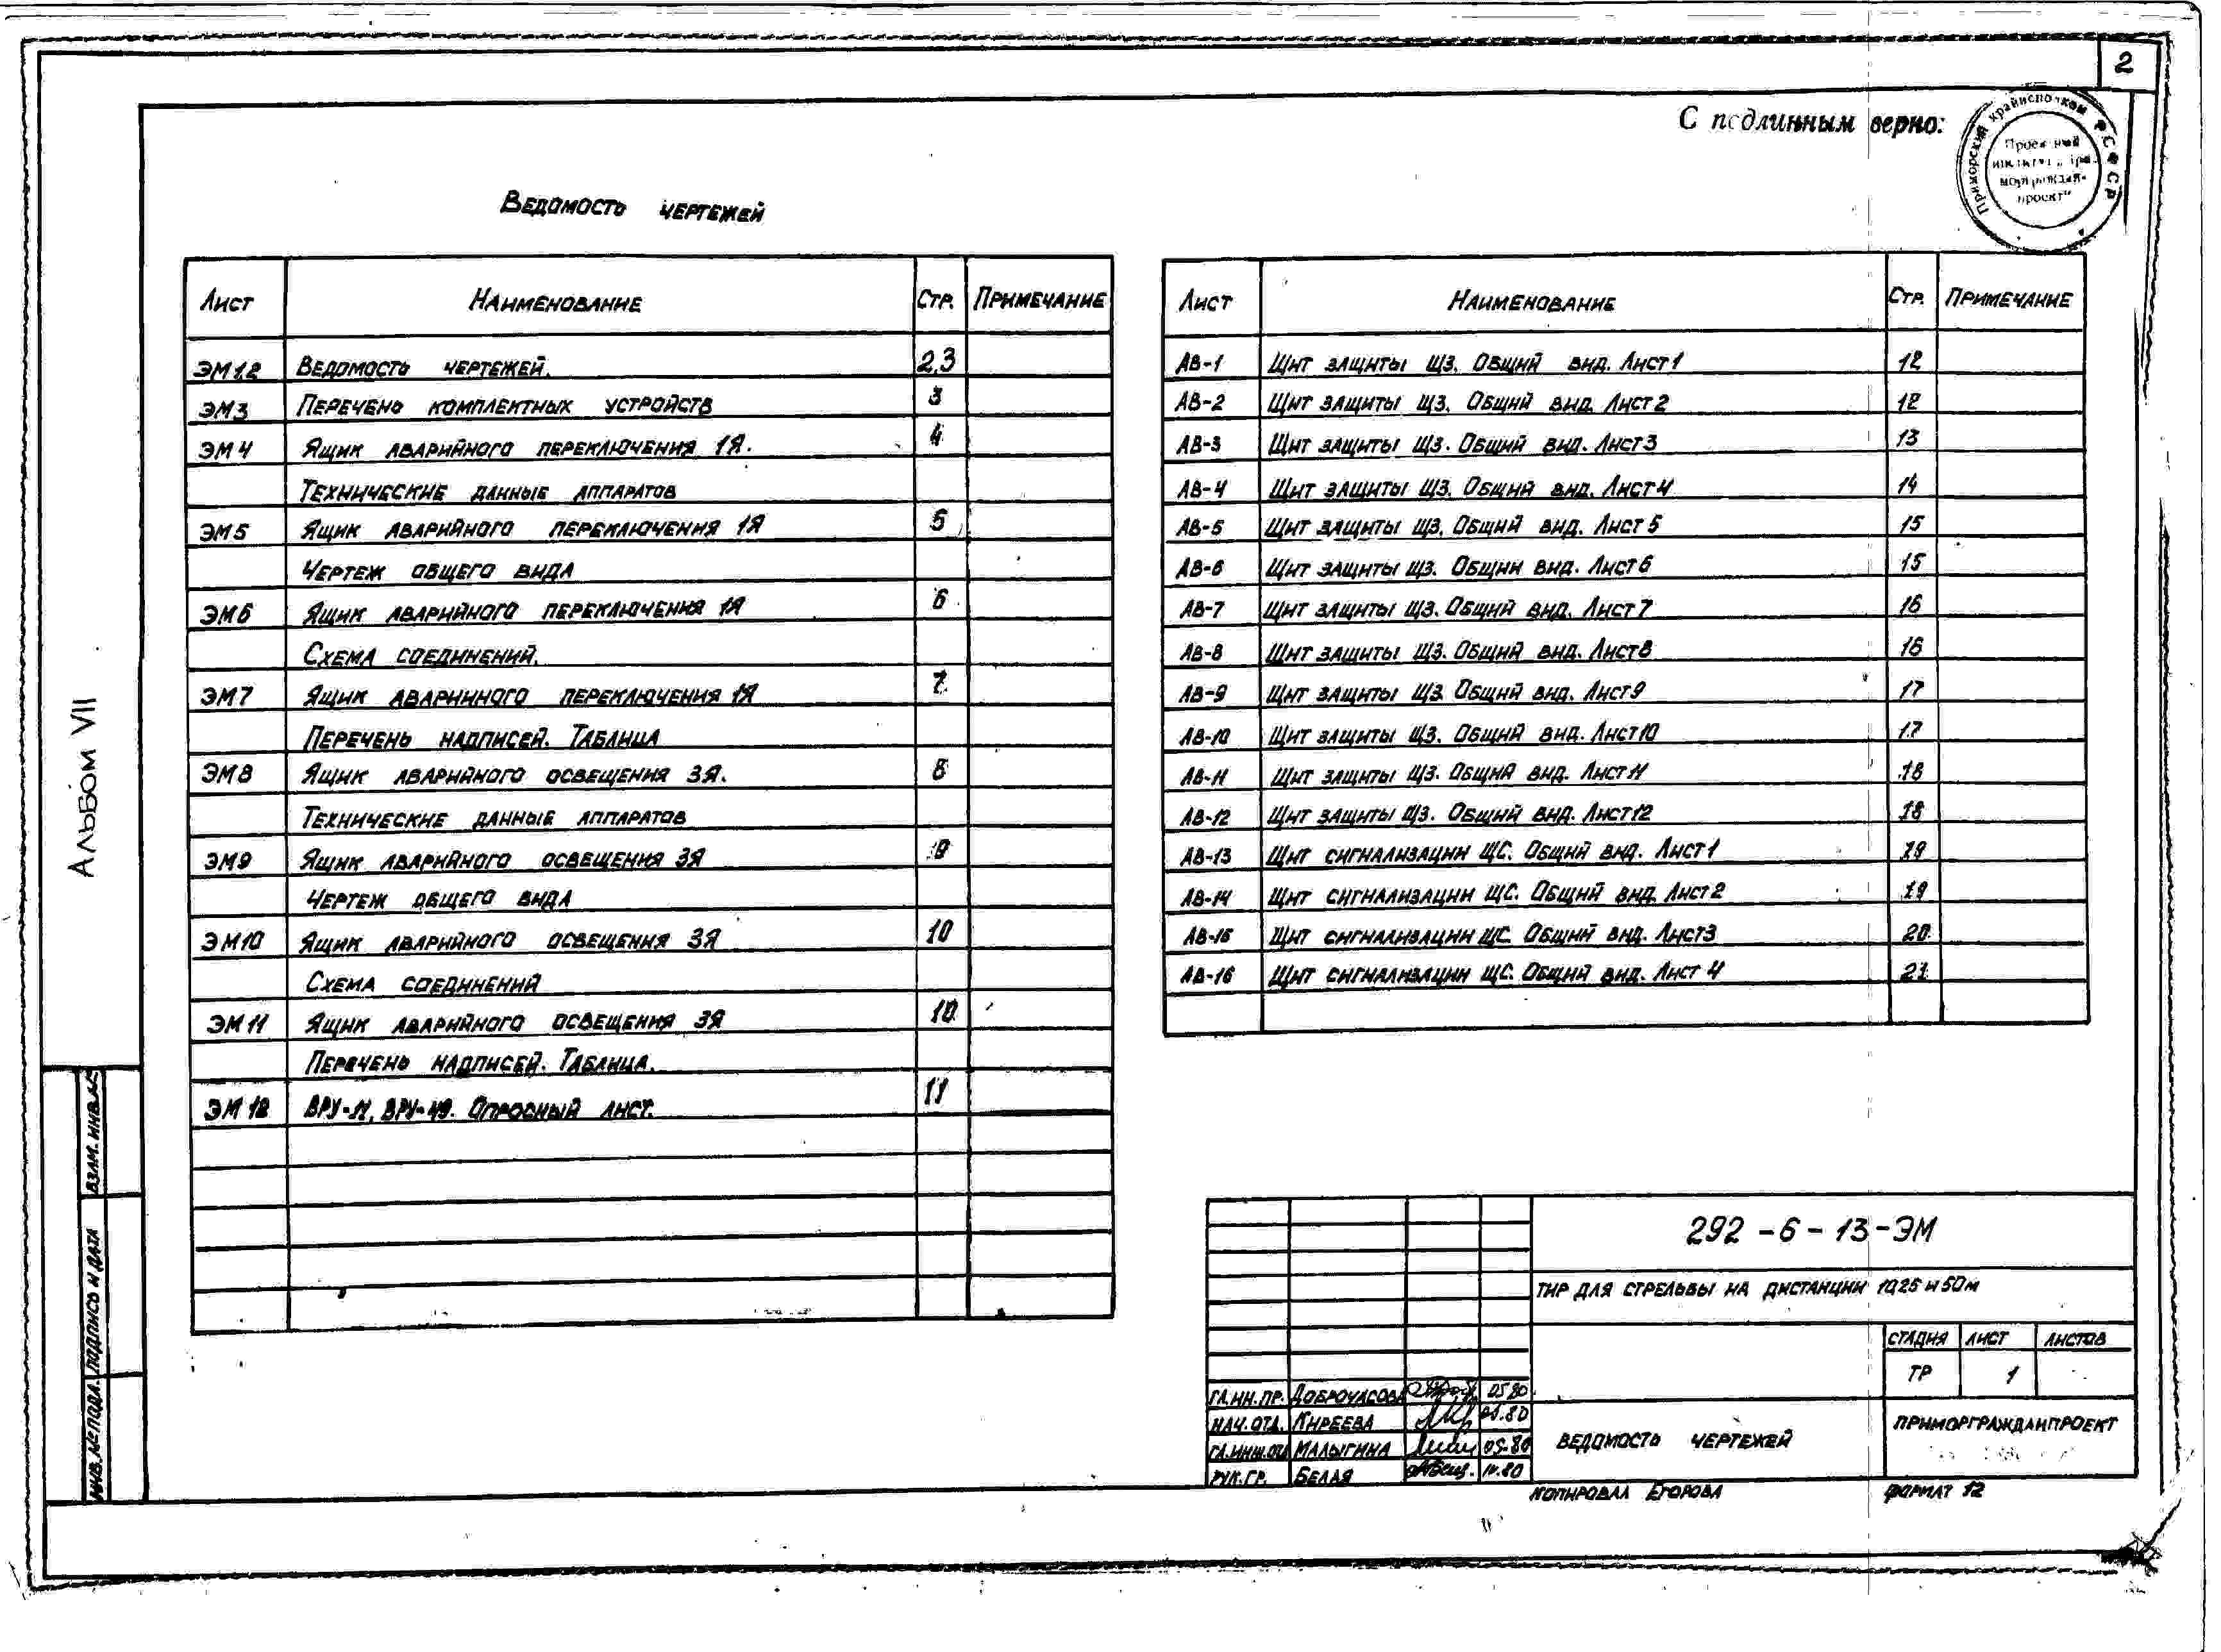 2
С подлинным верно:
Приморский крайисполком РСФСР
Проектный
институт
проект"
Ведомость чертежей
Лист Наименование Стр. Примечание
ЭМ1,2 Ведомость чертежей. 2,3
ЭМ3 Перечень комплектных устройств 3
ЭМ4 Ящик аварийного переключения 1Я. 4
Технические данные аппаратов
ЭМ5 Ящик аварийного переключения 1Я 5
Чертеж общего вида
ЭМ6 Ящик аварийного переключения 1Я 6
Схема соединений.
ЭМ7 Ящик аварийного переключения 1Я 7
Перечень надписей. Таблица
ЭМ8 Ящик аварийного освещения 3Я. 8
Технические данные аппаратов
ЭМ9 Ящик аварийного освещения 3Я 9
Чертеж общего вида
ЭМ10 Ящик аварийного освещения 3Я 10
Схема соединений
ЭМ11 Ящик аварийного освещения 3Я 10
Перечень надписей. Таблица.
ЭМ12 ВРУ-11, ВРУ-49. Опросный лист. 11
Лист Наименование Стр. Примечание
АВ-1 Щит защиты ЩЗ. Общий вид. Лист 1 12
АВ-2 Щит защиты ЩЗ. Общий вид. Лист 2 12
АВ-3 Щит защиты ЩЗ. Общий вид. Лист 3 13
АВ-4 Щит защиты ЩЗ. Общий вид. Лист 4 14
АВ-5 Щит защиты ЩЗ. Общий вид. Лист 5 15
АВ-6 Щит защиты ЩЗ. Общий вид. Лист 6 15
АВ-7 Щит защиты ЩЗ. Общий вид. Лист 7 16
АВ-8 Щит защиты ЩЗ. Общий вид. Лист 8 16
АВ-9 Щит защиты ЩЗ. Общий вид. Лист 9 17
АВ-10 Щит защиты ЩЗ. Общий вид. Лист 10 17
АВ-11 Щит защиты ЩЗ. Общий вид. Лист 11 18
АВ-12 Щит защиты ЩЗ. Общий вид. Лист 12 18
АВ-13 Щит сигнализации ЩС. Общий вид. Лист 1 19
АВ-14 Щит сигнализации ЩС. Общий вид. Лист 2 19
АВ-15 Щит сигнализации ЩС. Общий вид. Лист 3 20
АВ-16 Щит сигнализации ЩС. Общий вид. Лист 4 21
Альбом VII
Взам. инв.№
Подпись и дата
Инв.№ подл.
292-6-13-ЭМ
Тир для стрельбы на дистанции 10,25 и 50м
Стадия Лист Листов
ТР 1
Гл.ин.пр. Доброчасова 05.80
Нач.отд. Киреева 05.80
Гл.инж.отд Малыгина 05.80
Рук.гр. Белая 04.80
Ведомость чертежей
Приморгражданпроект
Копировал Егорова
Формат 12